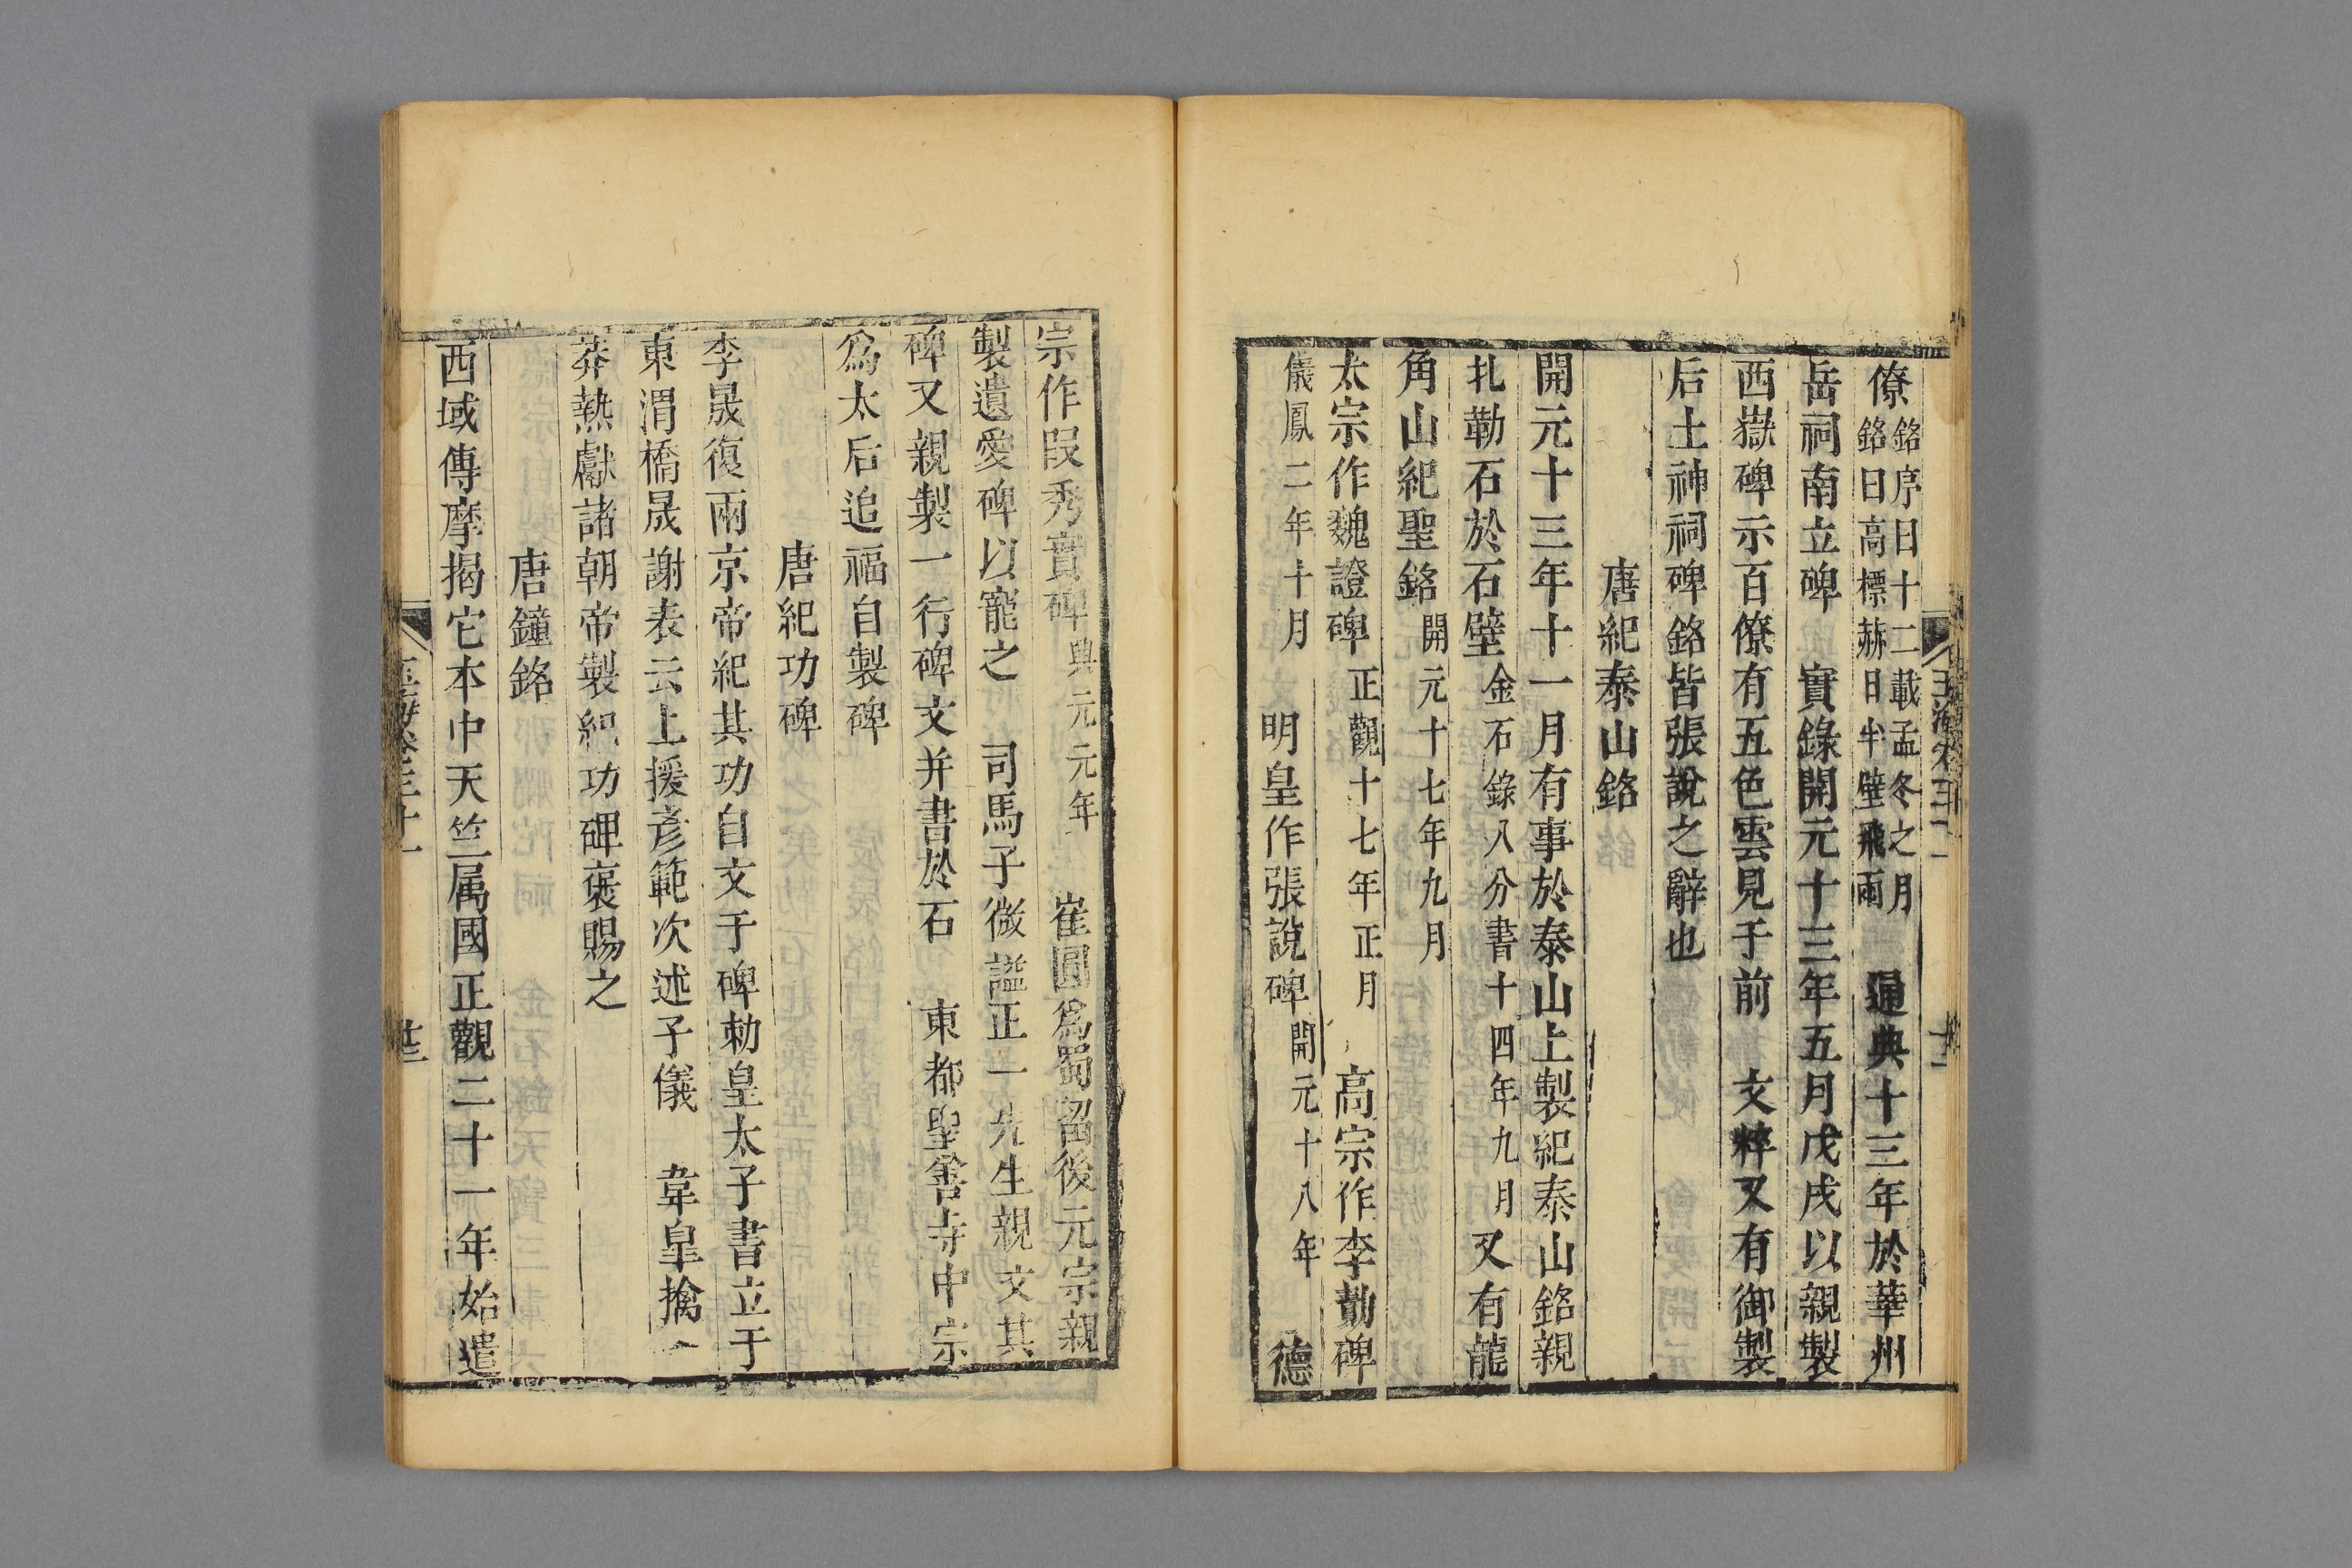 僚銘序曰十二載孟冬之月銘曰高標赫日半壁飛雨 通典十三年於華州
岳祠南立碑 實錄開元十三年五月戊戌以親製
西嶽碑示百僚有五色雲見于前 文粹又有御製
后土神祠碑銘皆張說之辭也
唐紀泰山銘
開元十三年十一月有事於泰山上製紀泰山銘親
札勒石於石壁金石錄八分書十四年九月又有龍
角山紀聖銘開元十七年九月
太宗作魏證碑正觀十七年正月 高宗作李勣碑
儀鳳二年十月 明皇作張說碑開元十八年 德
宗作段秀實碑興元元年 崔圓為蜀留後元宗親
製遺愛碑以寵之 司馬子微謚正一先生親文其
碑又親製一行碑文并書於石 東都聖善寺中宗
為太后追福自製碑
唐紀功碑
李晟復兩京帝紀其功自文于碑勅皇太子書立于
東渭橋晟謝表云上援彥範次述子儀 韋皋擒
莽熱獻諸朝帝製紀功碑褒賜之
唐鐘銘
西域傳摩揭它本中天竺属國正觀二十一年始遣
玉海卷三十一
廿三